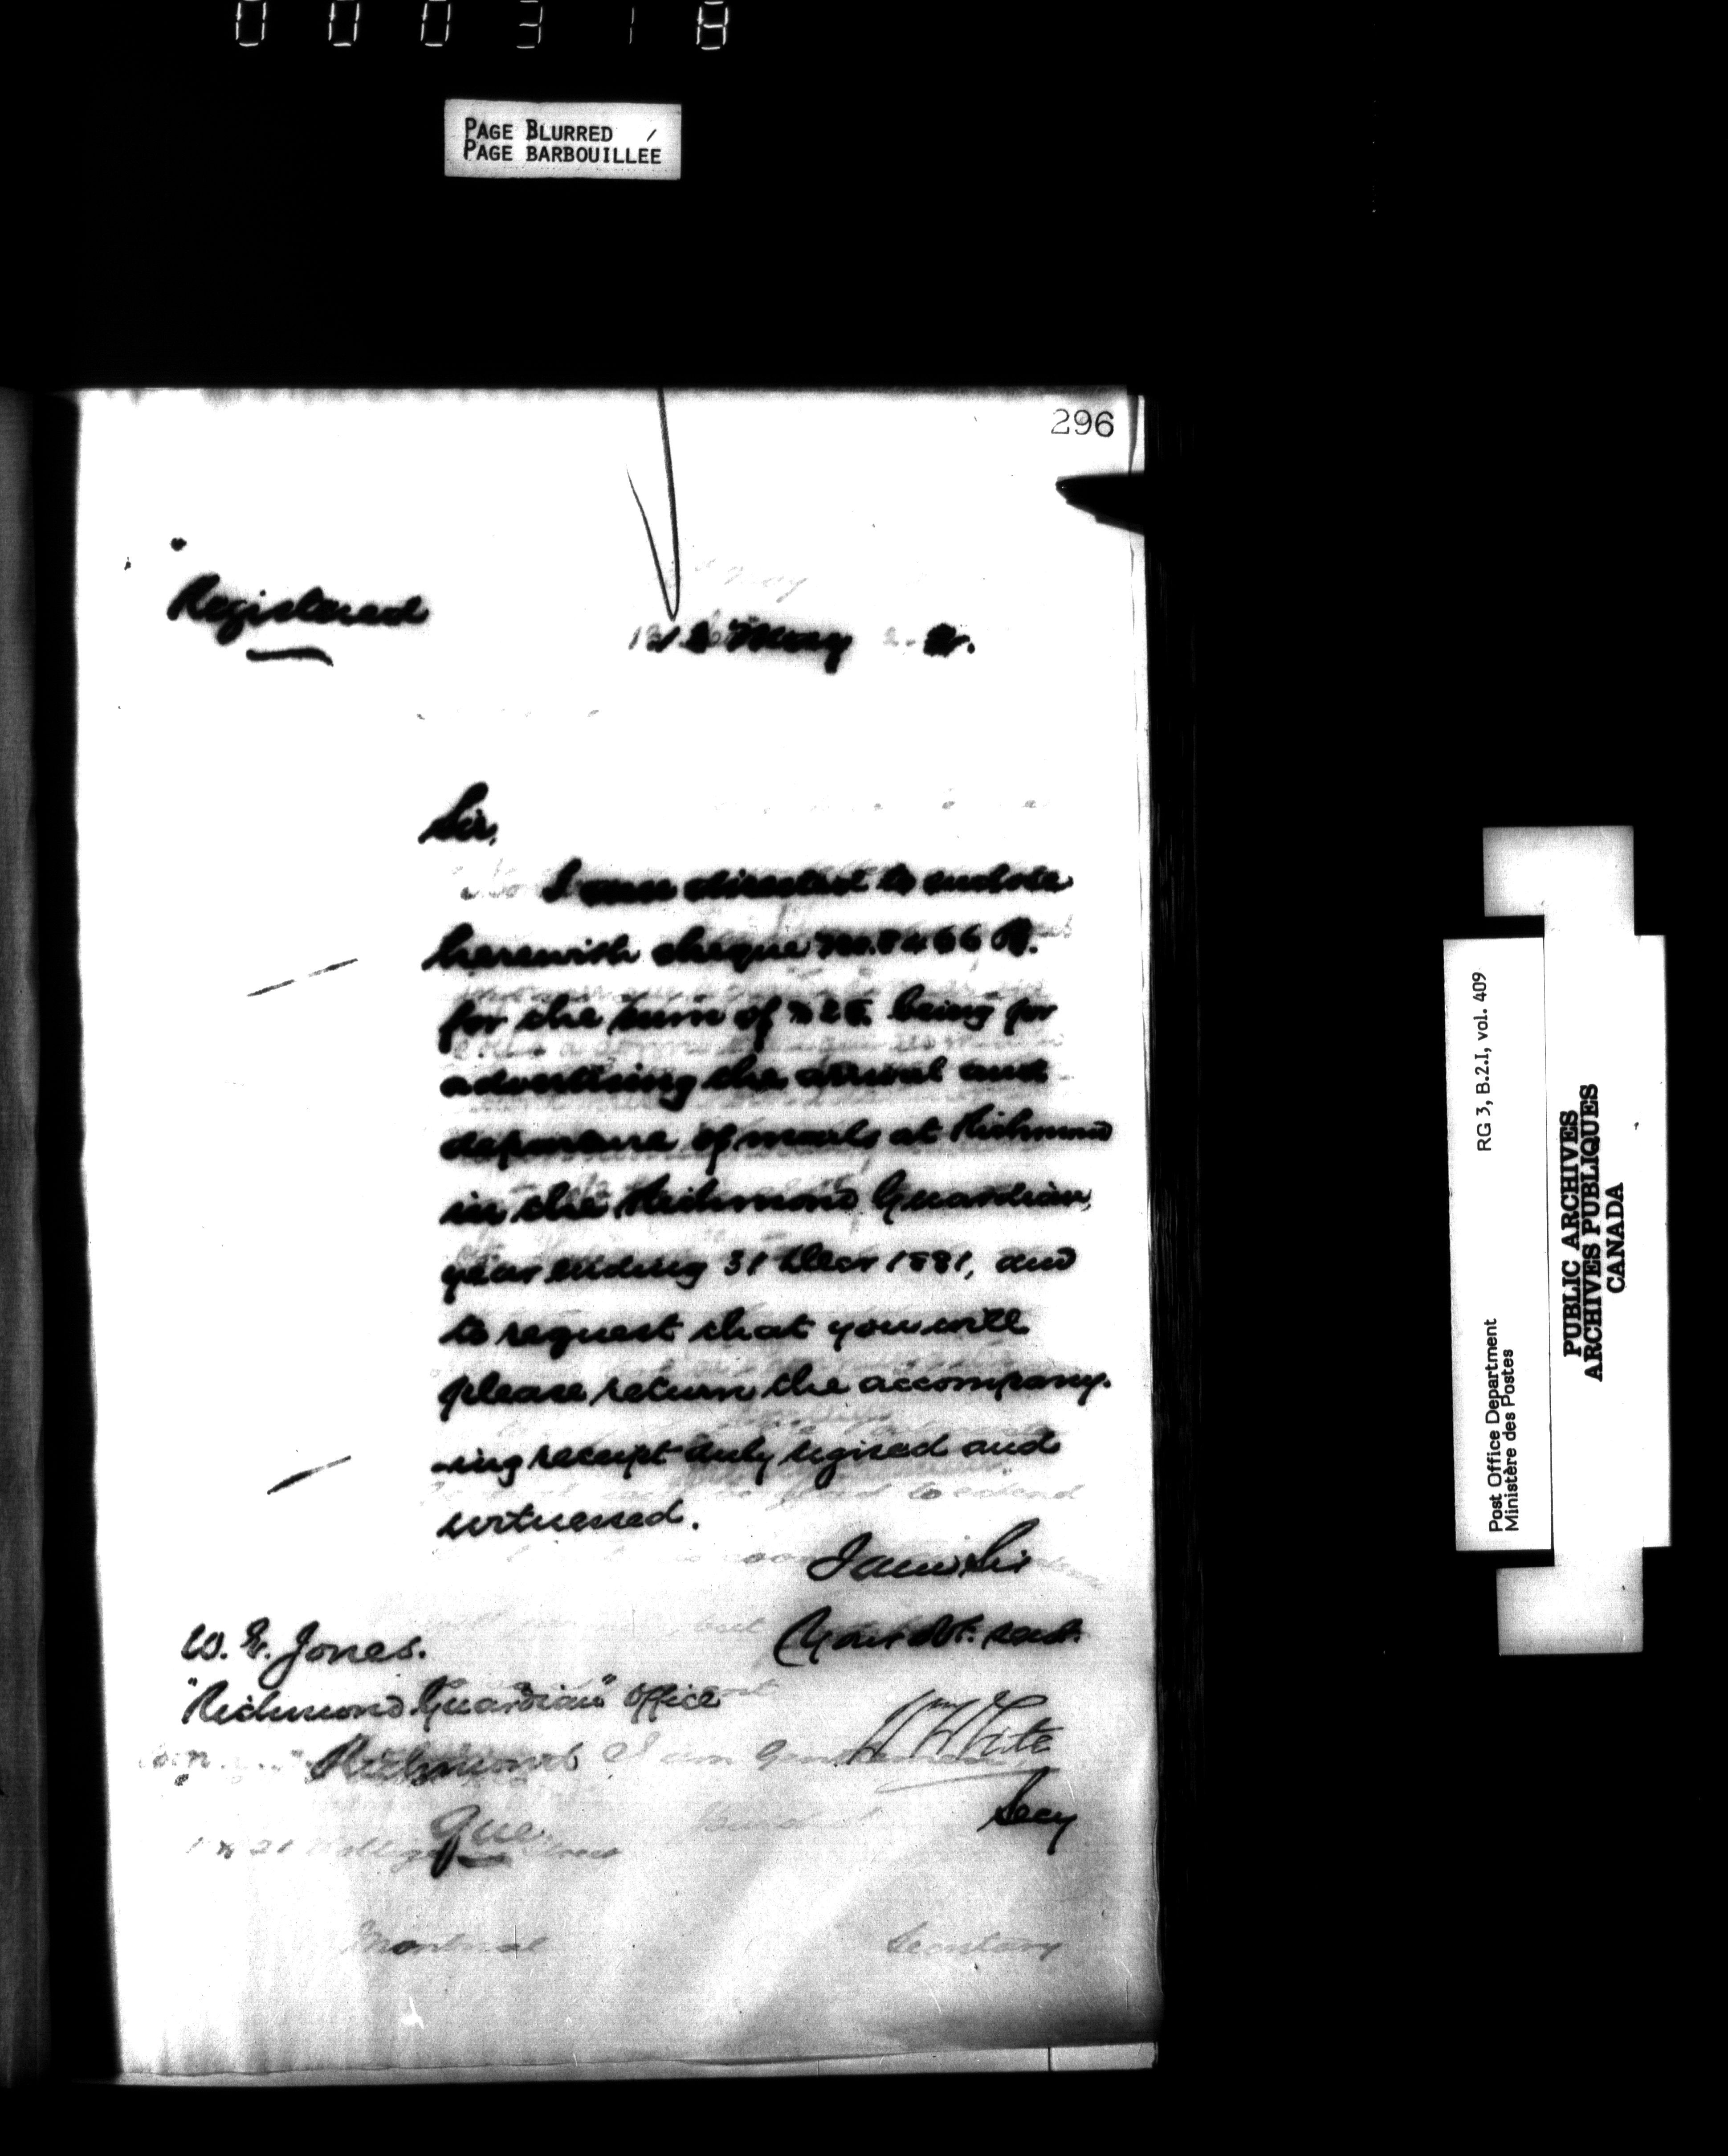 000318
PAGE BLURRED
PAGE BARBOUILLÉE
296
Registered
12 May 2.
Sir,
I am directed to enclose
herewith cheque No. 8466 B.
for the sum of $25. being for
advertising the arrival and
departure of mails at Richmond
in the Richmond Guardian,
year ending 31 Decr 1881, and
to request that you will
please return the accompany-
ing receipt duly signed and
witnessed.
I am Sir
Your Obt. servt.
W. E. Jones.
"Richmond Guardian" Office
Richmond
Que
Wm White
Secy
I am Gentlemen
Montreal
Secretary
RG 3, B.2.I, vol. 409
Post Office Department
Ministère des Postes
PUBLIC ARCHIVES
ARCHIVES PUBLIQUES
CANADA